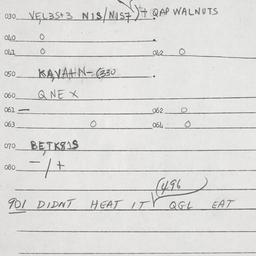 030 VEL3S+3 N1S/N1S7 )+ QAP WALNUTS
040 0
041 0 042 0
050 KAVA+N-(330
060 QNEX
061 — 062 0
063 0 064 0
070 BETK81S
080 -/+
(496
901 DIDNT HEAT IT QGL EAT